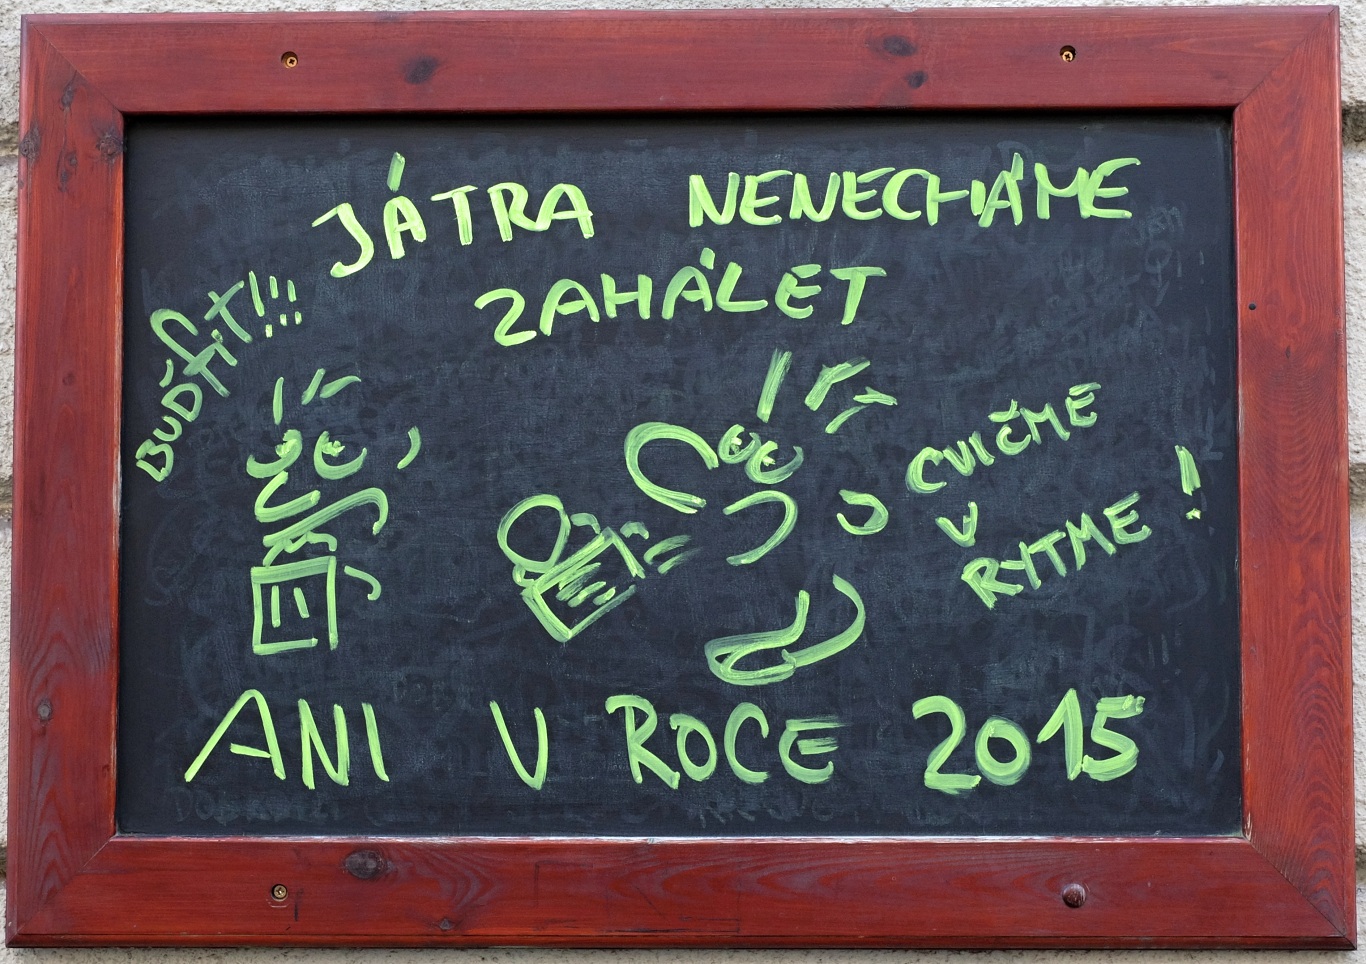 JÁTRA NENECHÁME
ZAHÁLET
BUĎ FIT!!!
CVIČME
V
RYTME!
ANI V ROCE 2015